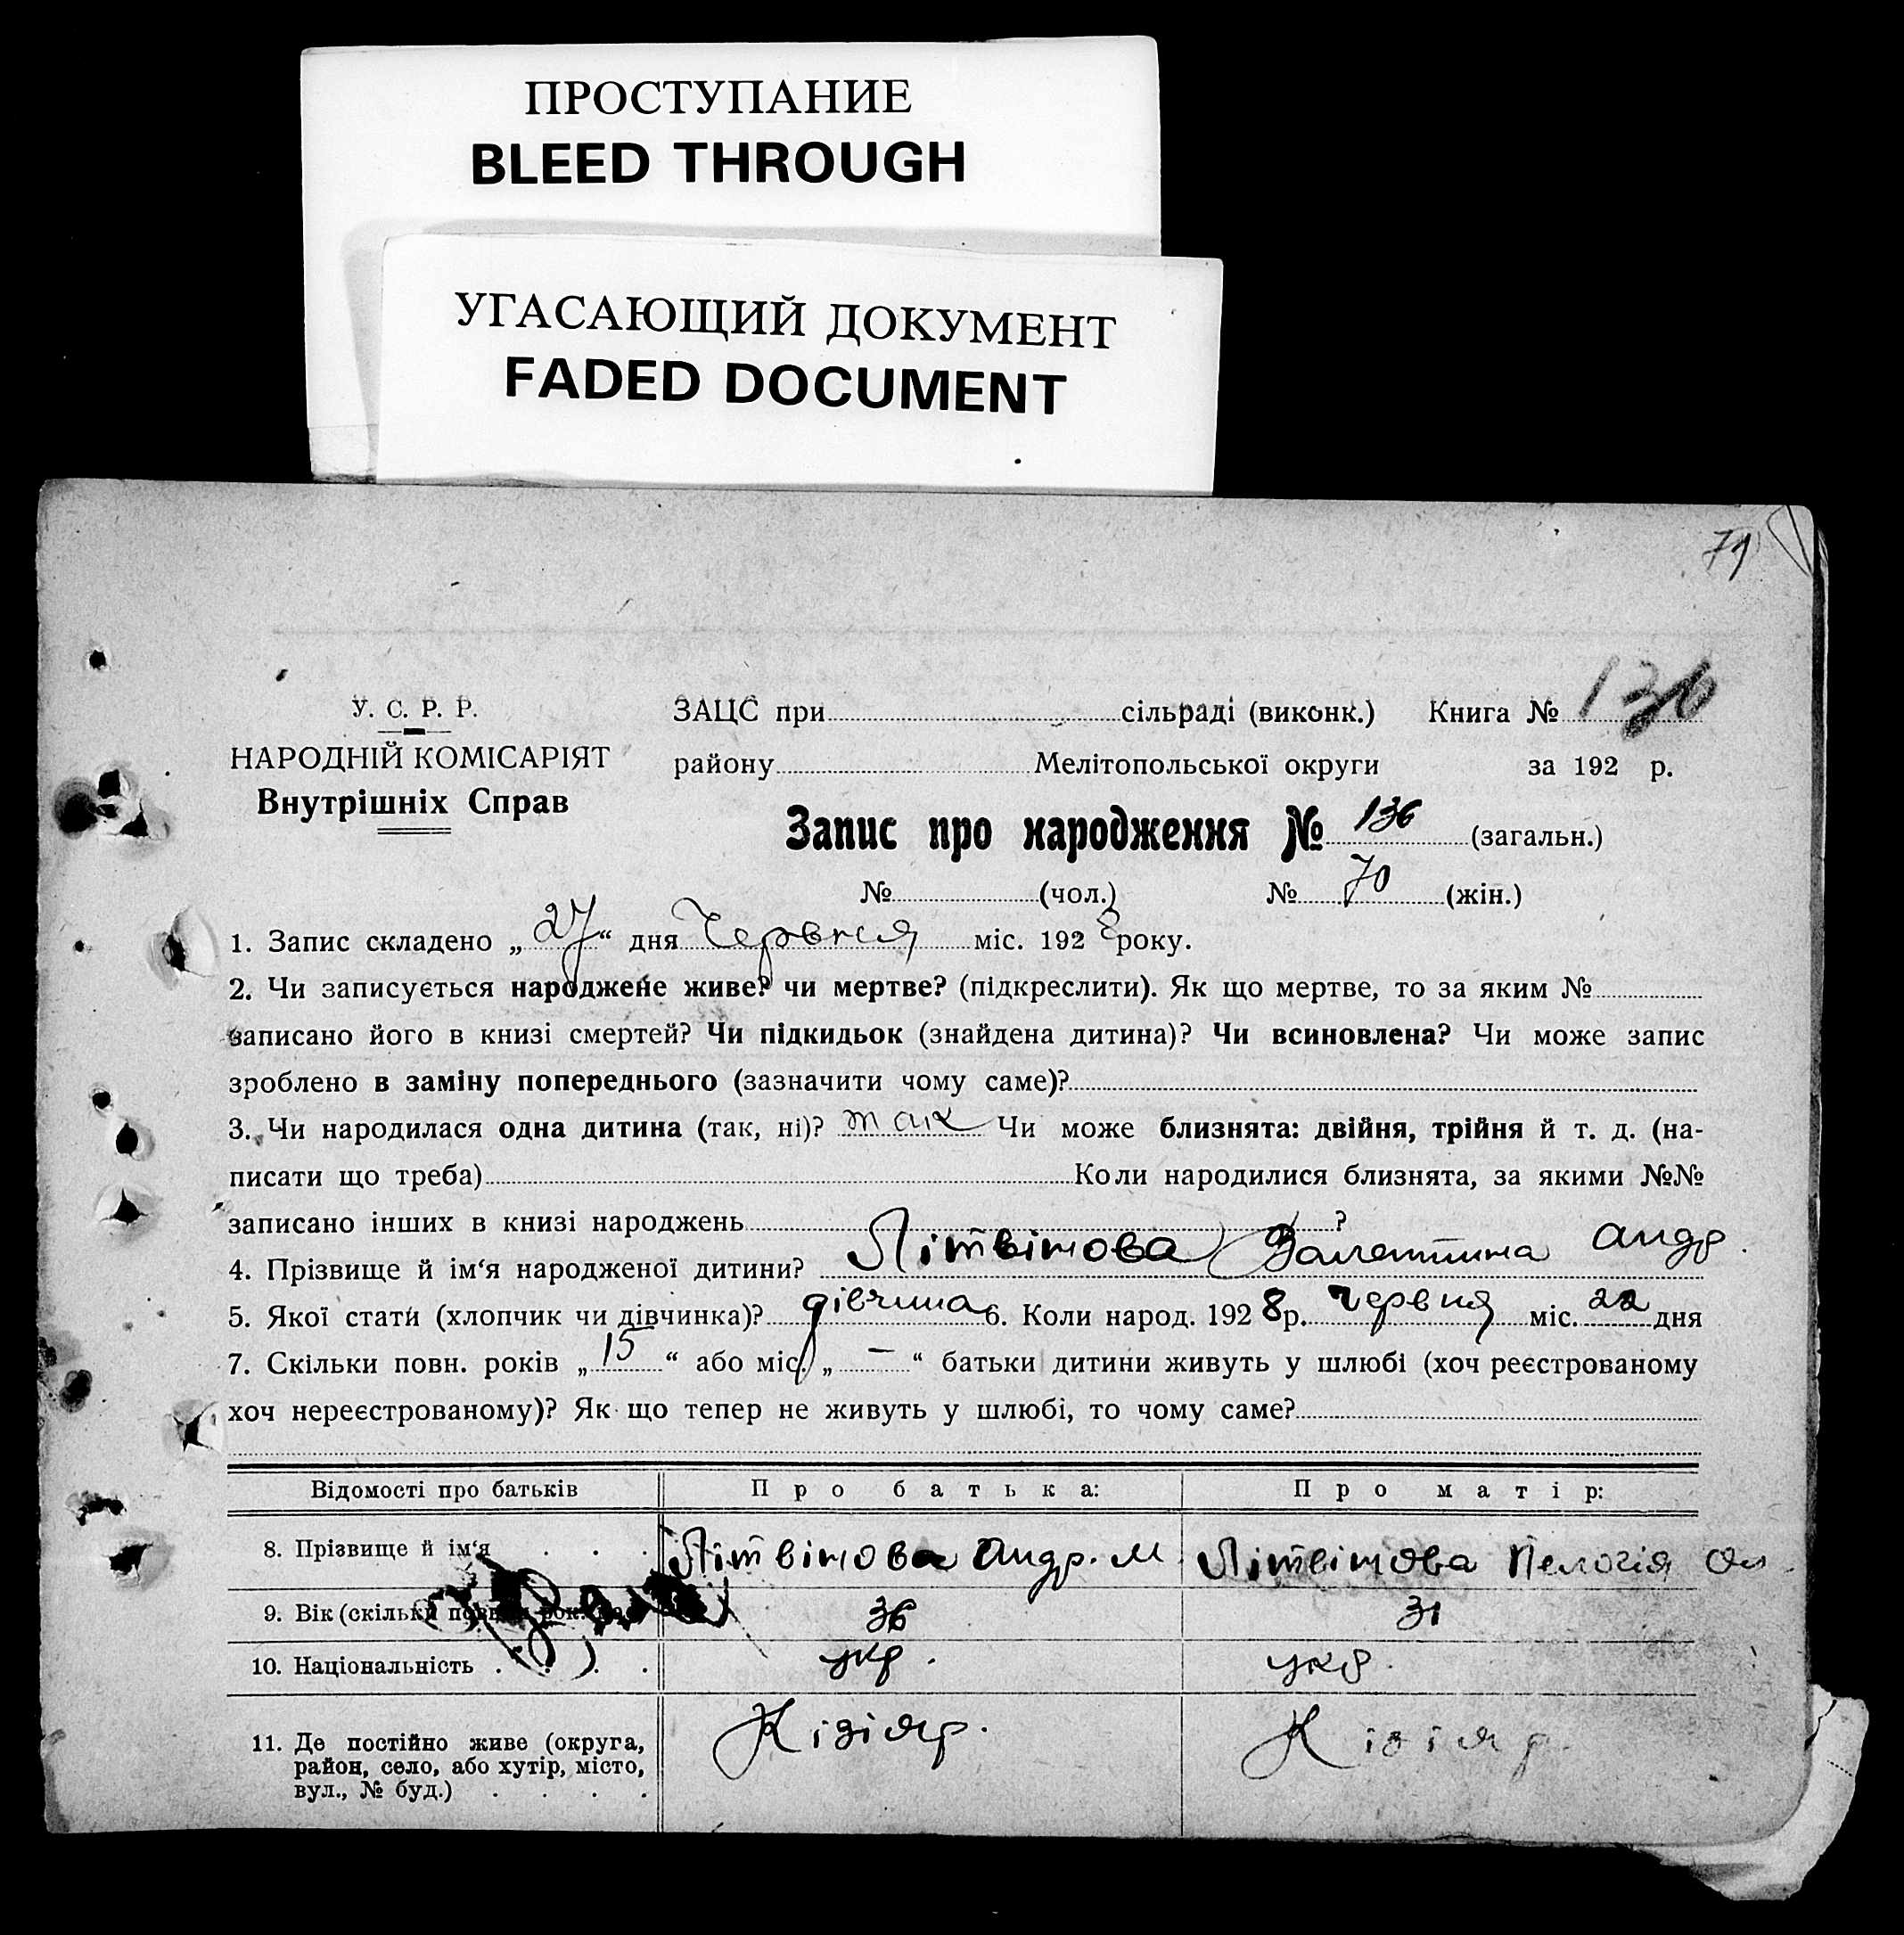 ПРОСТУПАНИЕ
BLEED THROUGH
УГАСАЮЩИЙ ДОКУМЕНТ
FADED DOCUMENT
71
У. С. Р. Р.
НАРОДНІЙ КОМІСАРІЯТ
Внутрішніх Справ
ЗАЦС при сільраді (виконк.) Книга № 136
району Мелітопольської округи за 192 р.
Запис про народження № 136 (загальн.)
№ (чол.) № 70 (жін.)
1. Запис складено „27“ дня Червня міс. 1928 року.
2. Чи записується народжене живе? чи мертве? (підкреслити). Як що мертве, то за яким №
записано його в книзі смертей? Чи підкидьок (знайдена дитина)? Чи всиновлена? Чи може запис
зроблено в заміну попереднього (зазначити чому саме)?
3. Чи народилася одна дитина (так, ні)? так Чи може близнята: двійня, трійня й т. д. (на-
писати що треба) Коли народилися близнята, за якими №№
записано інших в книзі народжень ?
4. Прізвище й ім‘я народженої дитини? Літвінова Валентина Андр.
5. Якої стати (хлопчик чи дівчинка)? дівчина 6. Коли народ. 1928 р. червня міс. 22 дня
7. Скільки повн. років „15“ або міс. „—“ батьки дитини живуть у шлюбі (хоч реєстрованому
хоч нереєстрованому)? Як що тепер не живуть у шлюбі, то чому саме?
Відомості про батьків Про батька: Про матір:
8. Прізвище й ім‘я . . . Літвінова Андр. М Літвінова Пелогія Ол.
9. Вік (скільки 36 31
10. Національність . . . . укр. укр.
11. Де постійно живе (округа, район, село, або хутір, місто, вул., № буд.) . . . . Кізіяр. Кізіяр.